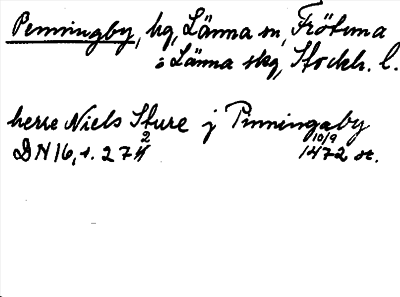 Penningby, hg, Länna sn, Frötuna
o Länna skg, Stockh. l.
herre Niels Sture j Pinningaby
DN 16, s. 272 10/9 1472 or.